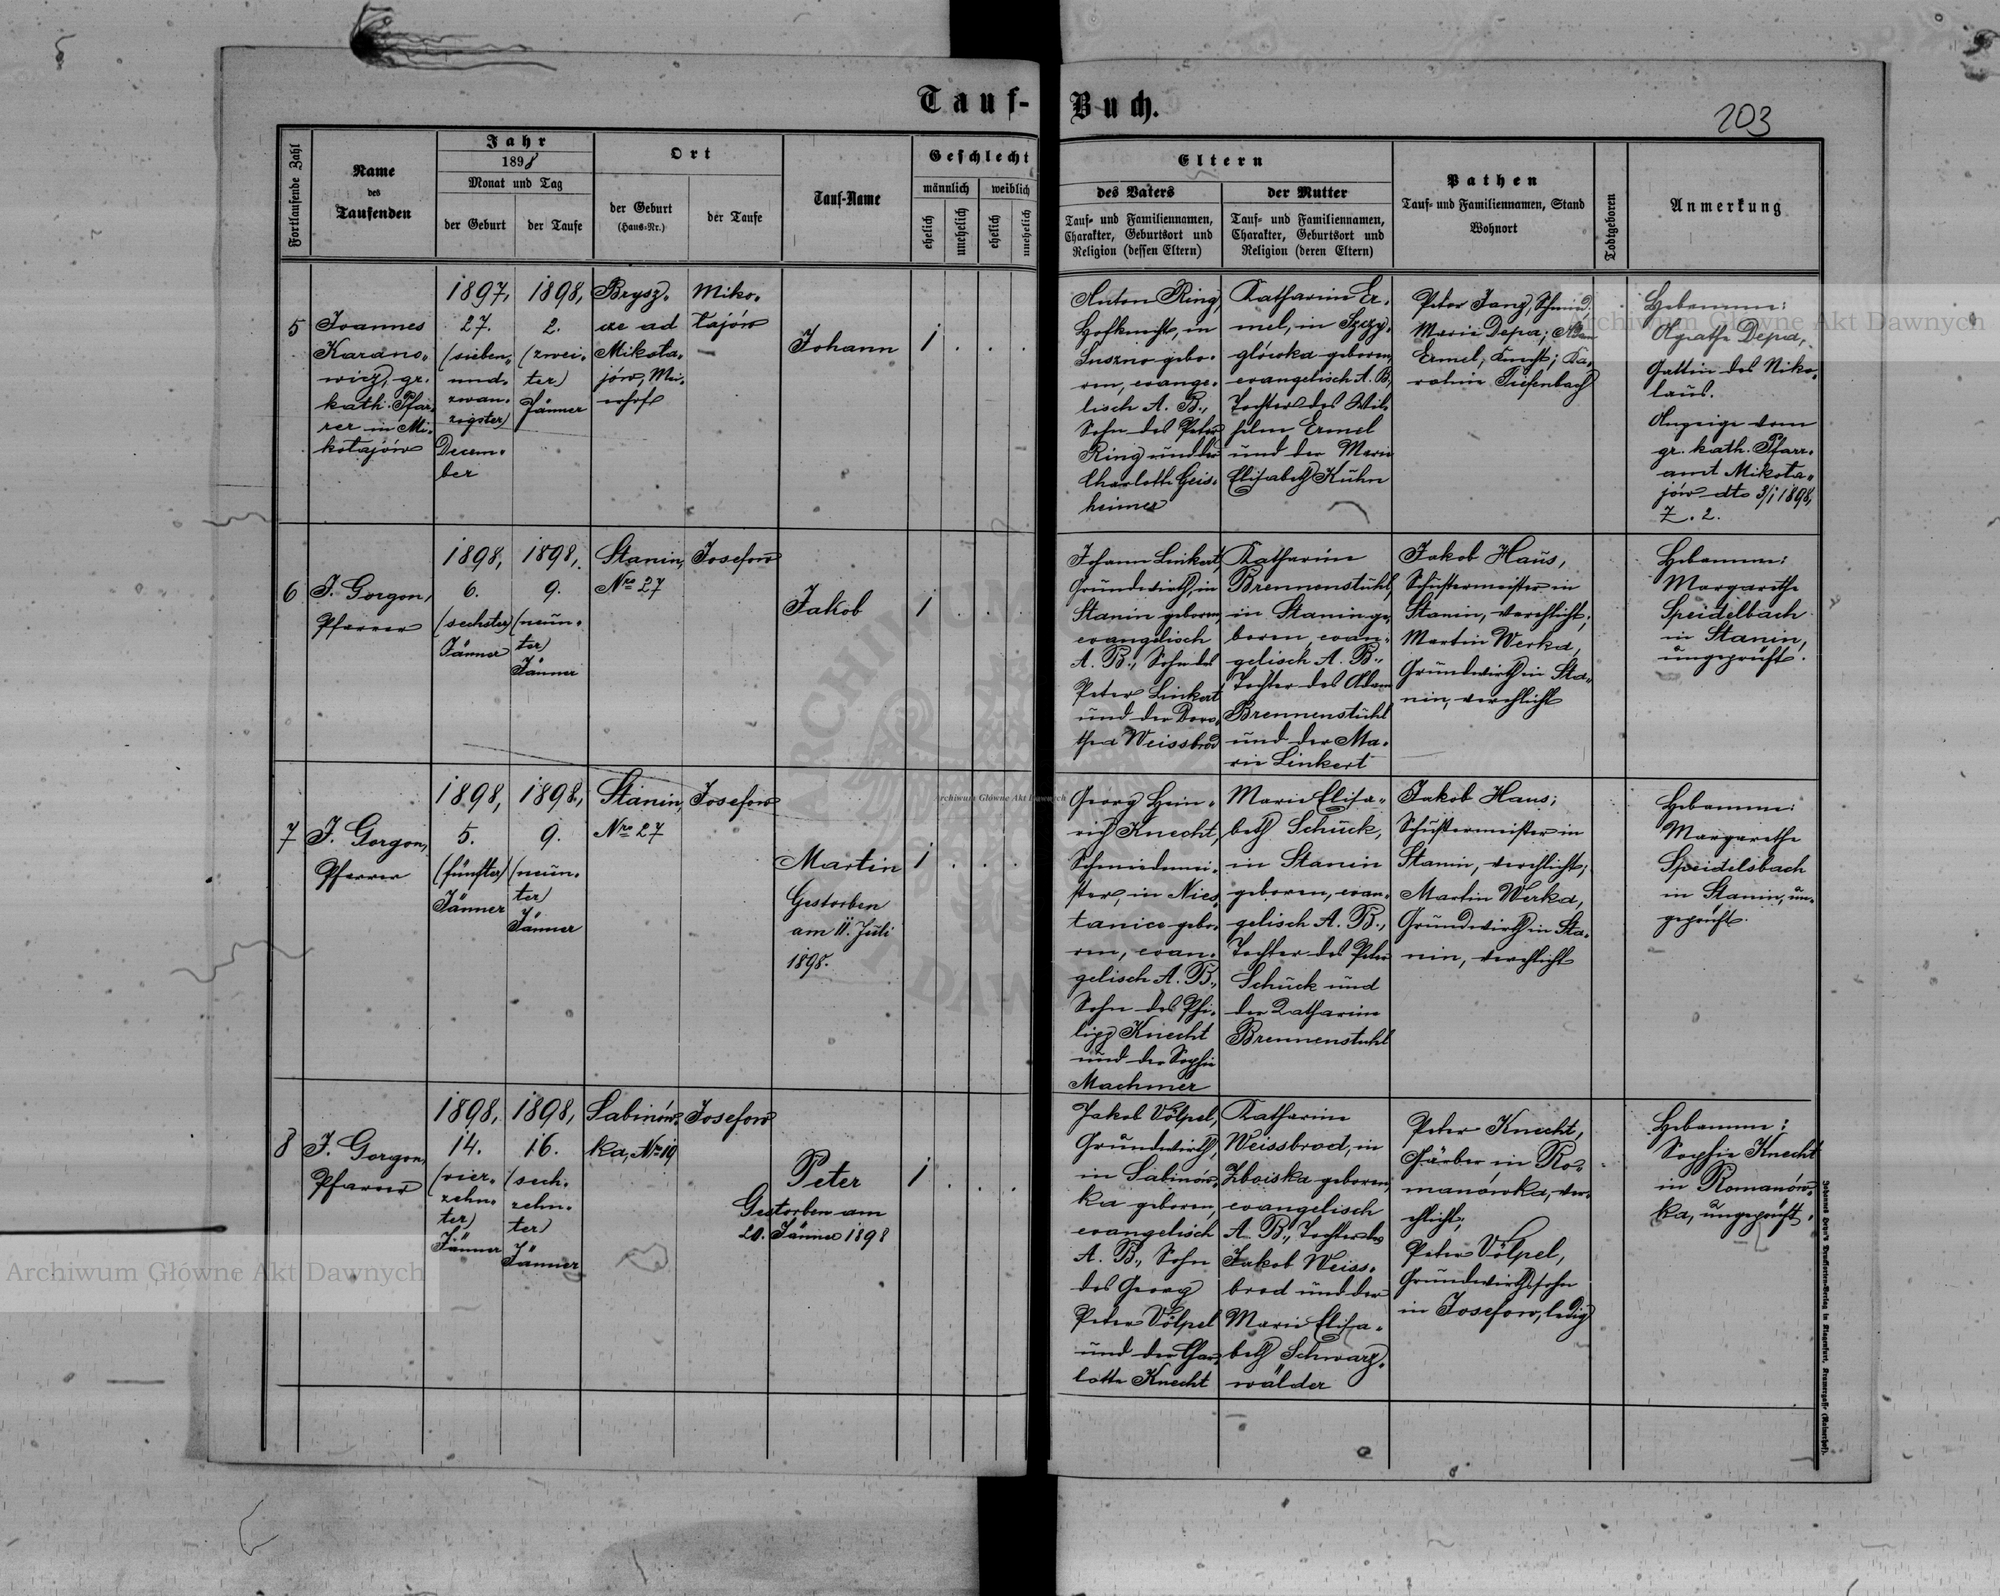 Tauf-Buch.
203
Fortlaufende Zahl
Name
des
Taufenden
Jahr
1898
Monat und Tag
der Geburt
der Taufe
Ort
der Geburt
(Haus-Nr.)
der Taufe
Tauf-Name
Geschlecht
männlich
weiblich
ehelich
unehelich
ehelich
unehelich
Eltern
des Vaters
Tauf- und Familiennamen,
Charakter, Geburtsort und
Religion (dessen Eltern)
der Mutter
Tauf- und Familiennamen,
Charakter, Geburtsort und
Religion (deren Eltern)
Pathen
Tauf- und Familiennamen, Stand
Wohnort
Todtgeboren
Anmerkung
5
Joannes
Karano-
wicz, gr.
kath. Pfar-
rer in Mi-
kołajów
1897,
27.
(sieben-
und-
zwan-
zigster)
Decem-
ber
1898,
2.
(zwei-
ter)
Jänner
Brysz-
cze ad
Mikoła-
jów, Mei-
erhof
Miko-
łajów
Johann
1
Anton Ring,
Hofknecht, in
Suszno gebo-
ren, evange-
lisch A. B.,
Sohn des Peter
Ring und der
Charlotte Geis-
heimer
Katharina Er-
mel, in Szczy-
główka geboren,
evangelisch A. B.,
Tochter des Wil-
helm Ermel
und der Marie
Elisabeth Kühn
Peter Jang, Schmied,
Marie Depa; Adam
Ermel, Knecht; Ka-
roline Tiefenbach
Hebamme:
Agathe Depa,
Gattin des Niko-
laus.
Anzeige vom
gr. kath. Pfarr-
amt Mikoła-
jów dto 3/1 1898,
Z. 2.
6
J. Gorgon,
Pfarrer
1898,
6.
(sechster)
Jänner
1898,
9.
(neun-
ter)
Jänner
Stanin,
Nro 27
Josefow
Jakob
1
Johann Linkert,
Grundwirth, in
Stanin geboren,
evangelisch
A. B., Sohn des
Peter Linkert
und der Doro-
thea Weissbrod
Katharina
Brennenstuhl,
in Stanin ge-
boren, evan-
gelisch A. B.,
Tochter des Adam
Brennenstuhl
und der Ma-
rie Linkert
Jakob Haus,
Schustermeister in
Stanin, verehlicht;
Martin Werka,
Grundwirth in Sta-
nin, verehlicht
Hebamme:
Margarethe
Speidelbach
in Stanin,
ungeprüft.
7
J. Gorgon,
Pfarrer
1898,
5.
(fünfter)
Jänner
1898,
9.
(neun-
ter)
Jänner
Stanin,
Nro 27
Josefow
Martin
Gestorben
am 11. Juli
1898.
1
Georg Hein-
rich Knecht,
Schmiedemei-
ster, in Nies-
tanice gebo-
ren, evan-
gelisch A. B.,
Sohn des Phi-
lipp Knecht
und der Sophie
Machmer
Marie Elisa-
beth Schuck,
in Stanin
geboren, evan-
gelisch A. B.,
Tochter des Peter
Schuck und
der Katharina
Brennenstuhl
Jakob Haus;
Schustermeister in
Stanin, verehlicht;
Martin Werka,
Grundwirth in Sta-
nin, verehlicht
Hebamme:
Margarethe
Speidelsbach
in Stanin, un-
geprüft.
8
J. Gorgon,
Pfarrer
1898,
14.
(vier-
zehn-
ter)
Jänner
1898,
16.
(sech-
zehn-
ter)
Jänner
Sabinów-
ka, Nro 19
Josefow
Peter
Gestorben am
20. Jänner 1898
1
Jakob Völpel,
Grundwirth,
in Sabinów-
ka geboren,
evangelisch
A. B., Sohn
des Georg
Peter Völpel
und der Char-
lotte Knecht
Katharina
Weissbrod, in
Zboiska geboren,
evangelisch
A. B., Tochter des
Jakob Weiss-
brod und der
Marie Elisa-
beth Schwarz-
wälder
Peter Knecht,
Gärber in Ro-
manówka, ver-
ehlicht;
Peter Völpel,
Grundwirthssohn
in Josefow, ledig
Hebamme:
Sophie Knecht
in Romanów-
ka, ungeprüft.
Archiwum Główne Akt Dawnych
Archiwum Główne Akt Dawnych
Archiwum Główne Akt Dawnych